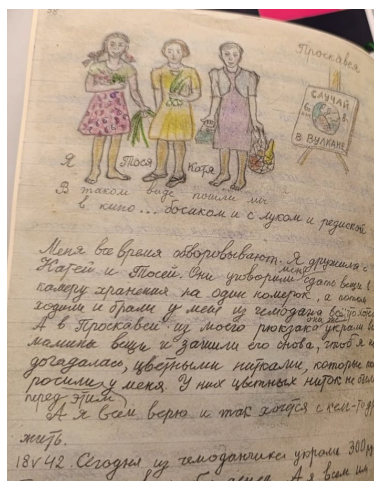 Проскавея
СЛУЧАЙ
В ВУЛКАНЕ
Я Тося Катя
В таком виде пошли мы
в кино... босаком и с луком и редиской
Меня все время обворовывают. Я дружила с
Катей и Тосей. Они уговорили меня сдать вещи в
камеру хранения на один номерок, а потом
ходили и брали у меня из чемодана все
А в Проскавеи из моего рюкзака украли
мамины вещи и зашили его снова, чтоб я не
догадалась, цветными нитками, которые
росили у меня. У них цветных ниток не было
перед этим
А я всем верю и так хочется с кем-то дру
жить.
18 V 42. Сегодня из чемоданчика украли 300 ру
А я всем